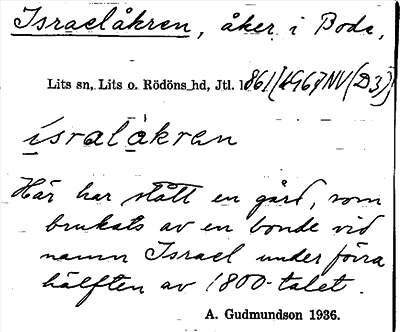 Israelåkren, åker i Boda,
Lits sn, Lits o. Rödöns hd, Jtl. 1861(4967NV(D3))
isralåkren
Här har stått en gård, som
brukats av en bonde vid
namn Israel under förra
hälften av 1800-talet.
A. Gudmundson 1936.